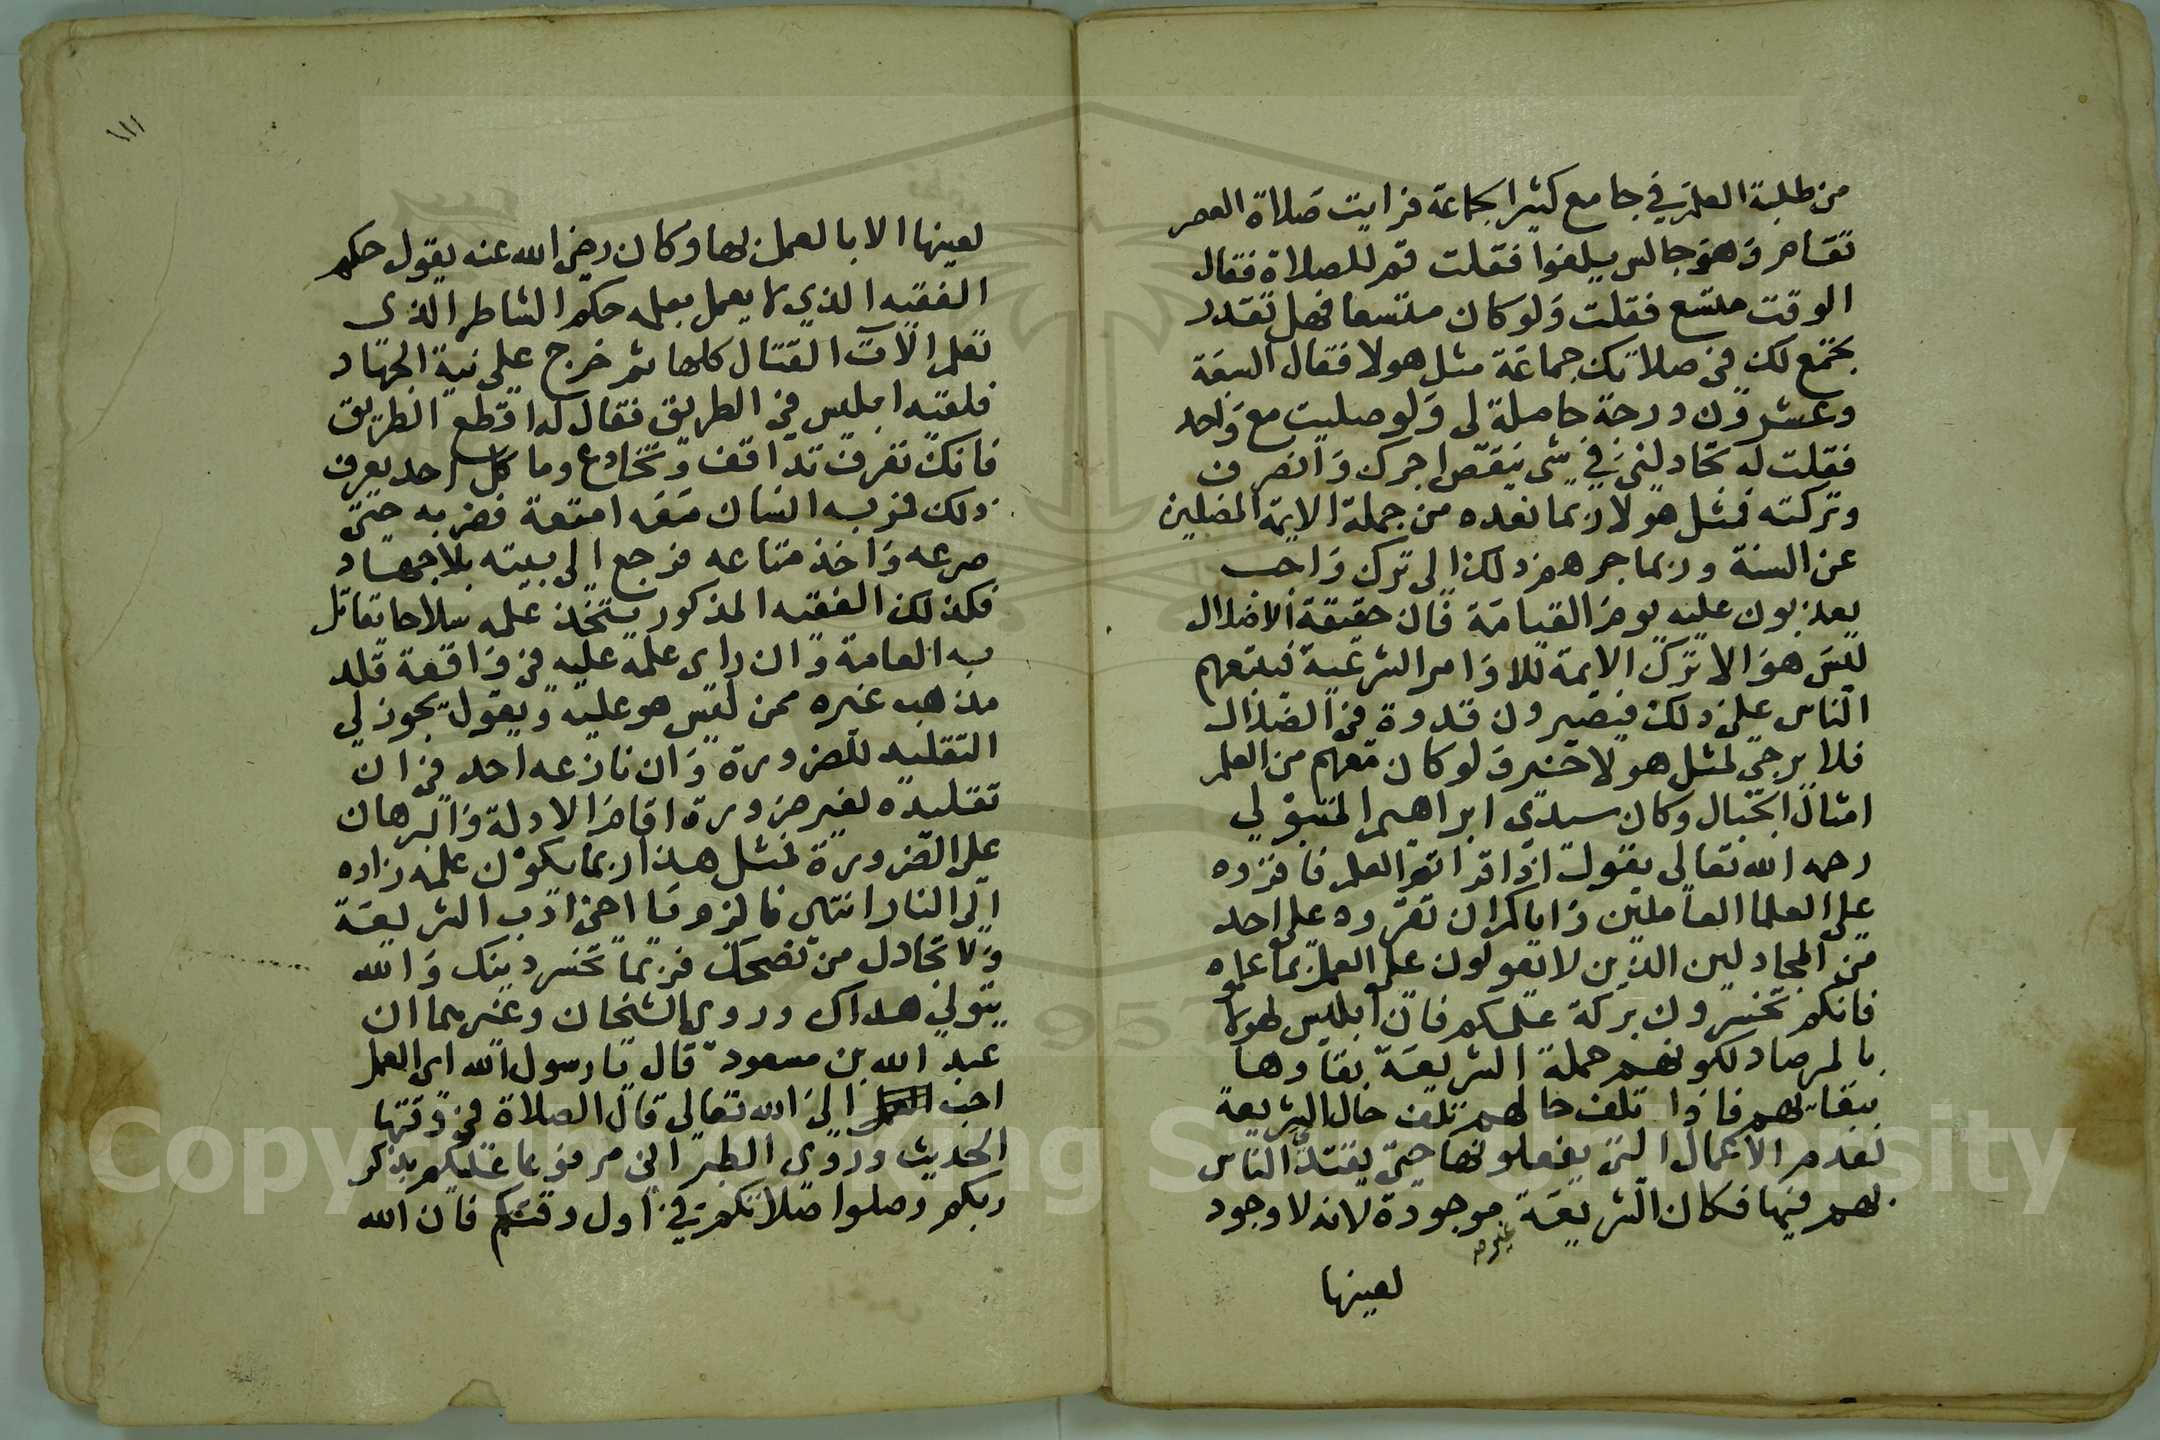 من طلبة العلم في جامع كثير الجماعة فرايت صلاة العصر
تقام وهو جالس يلغوا فقلت قم للصلاة فقال
الوقت متسع فقلت ولو كان متسعا فهل تقدر
يجتمع لك في صلاتك جماعة مثل هولا فقال السبعة
وعشرون درجة حاصلة لي ولو صليت مع واحد
فقلت له تجادلني في شي ينقص اجرك وانصرف
وتركته فمثل هولا ربما نعده من جملة الايمة المضلين
عن السنة وربما جرهم ذلك الى ترك واجب
يعذبون عليه يوم القيامة فان حقيقة الاضلال
ليس هو الا ترك الايمة للاوامر الشرعية فيتبعهم
الناس على ذلك فيصيرون قدوة في الضلال
فلا يرجي لمثل هولا خير ولو كان معهم من العلم
امثال الجبال وكان سيدي ابراهيم المتبولي
رحمه الله تعالى يقول اذا قراتم العلم فاقروه
على العلما العاملين واياكم ان تقروه على احد
من المجادلين الذين لا يعولون على العمل بما علموه
فانكم تخسرون بركة علمكم فان ابليس لهولا
بالمرصاد لكونهم حملة الشريعة بقاوها
ببقايهم فاذا تلف حالهم تلف حال الشريعة
لعدم الاعمال التي يفعلونها حتى يقتدي الناس
بهم فيها فكان الشريعة موجودة لانه لا وجود
لعينها
١١١
لعينها الا بالعمل بها وكان رضي الله عنه يقول حكم
الفقيه الذي لا يعمل بعلمه حكم الشاطر الذي
تعلم الآت القتال كلها ثم خرج على نية الجهاد
فلقيه ابليس في الطريق فقال له اقطع الطريق
فانك تعرف تداقف وتخادع وما كل احد يعرف
ذلك فمر به انسان معه امتعة فضربه حتى
صرعه واخذ متاعه فرجع الى بيته بلا جهاد
فكذلك الفقيه المذكور يتخذ علمه سلاحا يقاتل
به العامة وان راى علمه عليه في واقعة قلد
مذهب غيره ممن ليس هو عليه ويقول يجوز لي
التقليد للضرورة وان نازعه احد في ان
تقليده لغير ضرورة اقام الادلة والبرهان
على الضرورة فمثل هذا ربما يكون علمه زاده
الى النار انتهى فالزم يا اخي ادب الشريعة
ولا تجادل من نصحك فربما تخسر دينك والله
يتولى هداك وروى الشيخان وغيرهما ان
عبد الله بن مسعود قال يا رسول الله اى العمل
احب الى الله تعالى قال الصلاة في وقتها
الحديث وروى الطبراني مرفوعا عليكم بذكر
ربكم وصلوا صلاتكم في اول وقتكم فان الله